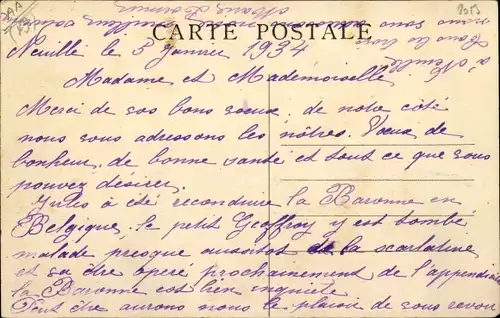 CARTE POSTALE
Neuville le 3 Janvier 1934
Madame et Mademoiselle
Merci de vos bons voeux, de notre côté
nous vous adressons les nôtres. Voeux de
bonheur, de bonne santé et tout ce que vous
pouvez désirer.
Jules à été reconduire la Baronne en
Belgique. le petit Geoffroy y est tombé
malade presque aussitot de la scarlatine
et va être opéré prochainement de l'appendicite
la Baronne est bien inquiète
Peut être aurons nous le plaisir de vous revoir
à Neuville